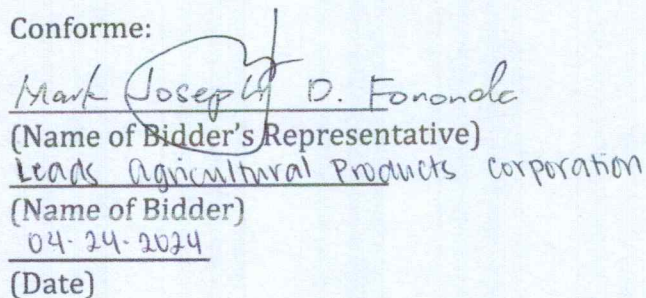 Conforme:
Mark Joseph D. Fononda
(Name of Bidder's Representative)
Leads Agricultural Products corporation
(Name of Bidder)
04-24-2024
(Date)